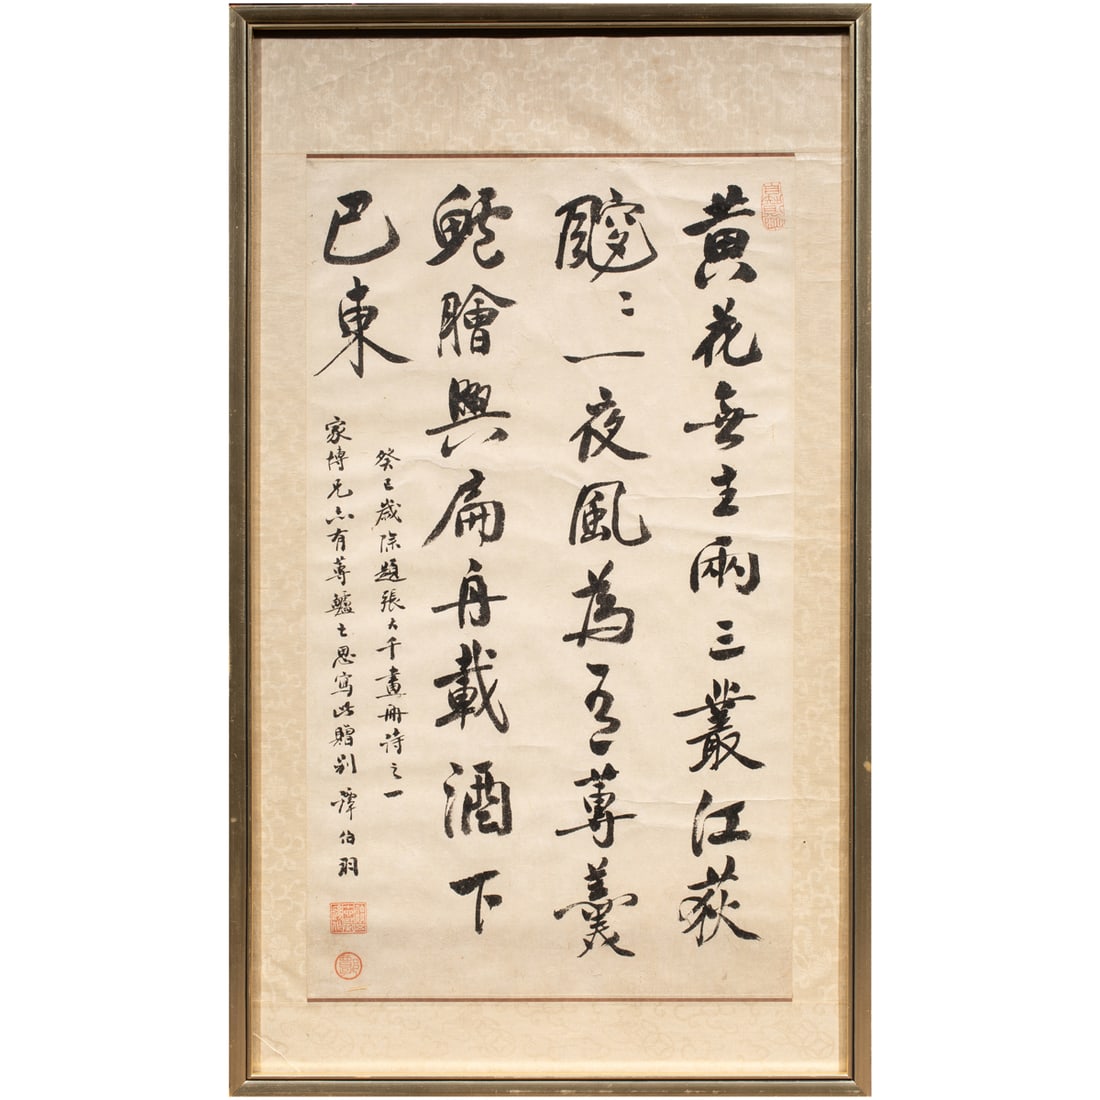 黃花無主兩三叢江荻
颼〻一夜風為有蓴羹
鱸膾興扁舟載酒下
巴東
癸巳歲除題張大千畫冊詩之一
家博兄亦有蓴鱸之思寫此贈別 譚伯羽